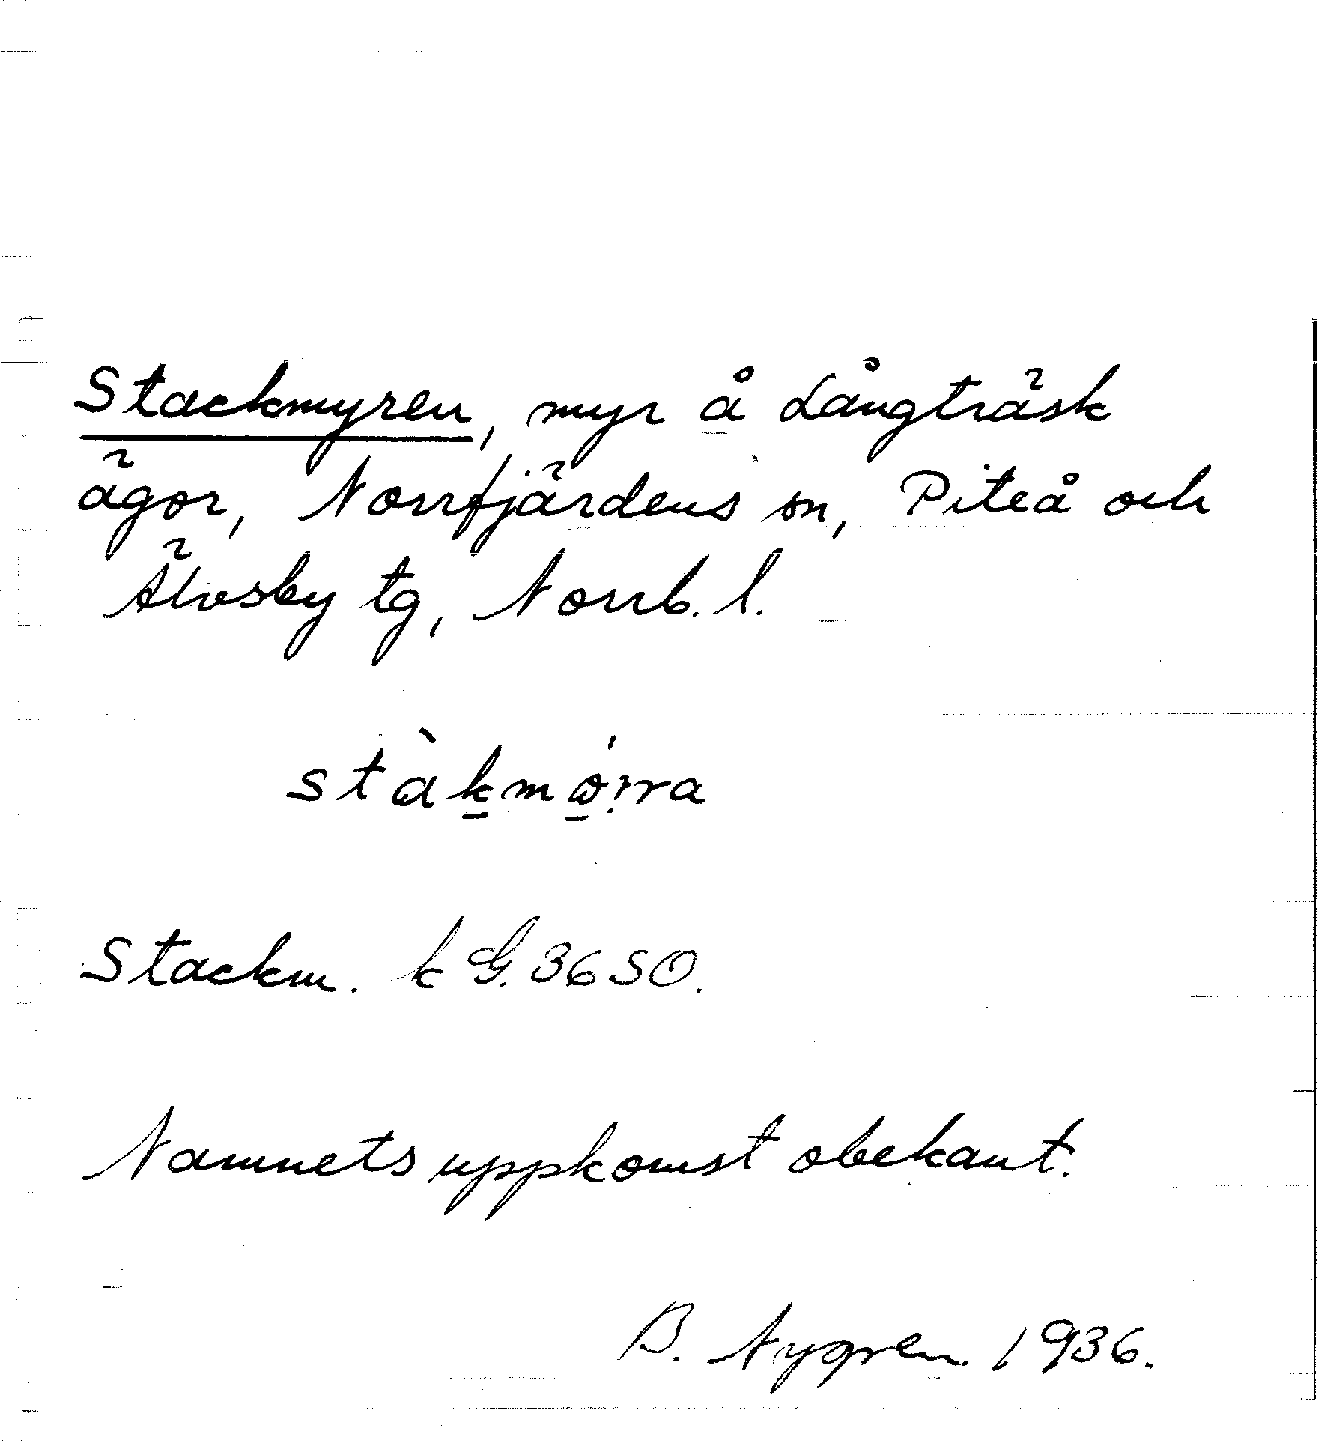 Stackmyren, myr å Långträsk
ägor, Norrfjärdens sn, Piteå och
Älvsby tg, Norrb. l.
stàk̠mǿ̠rra
Stackm. k G. 3650.
Namnets uppkomst obekant.
B. Nygren 1936.